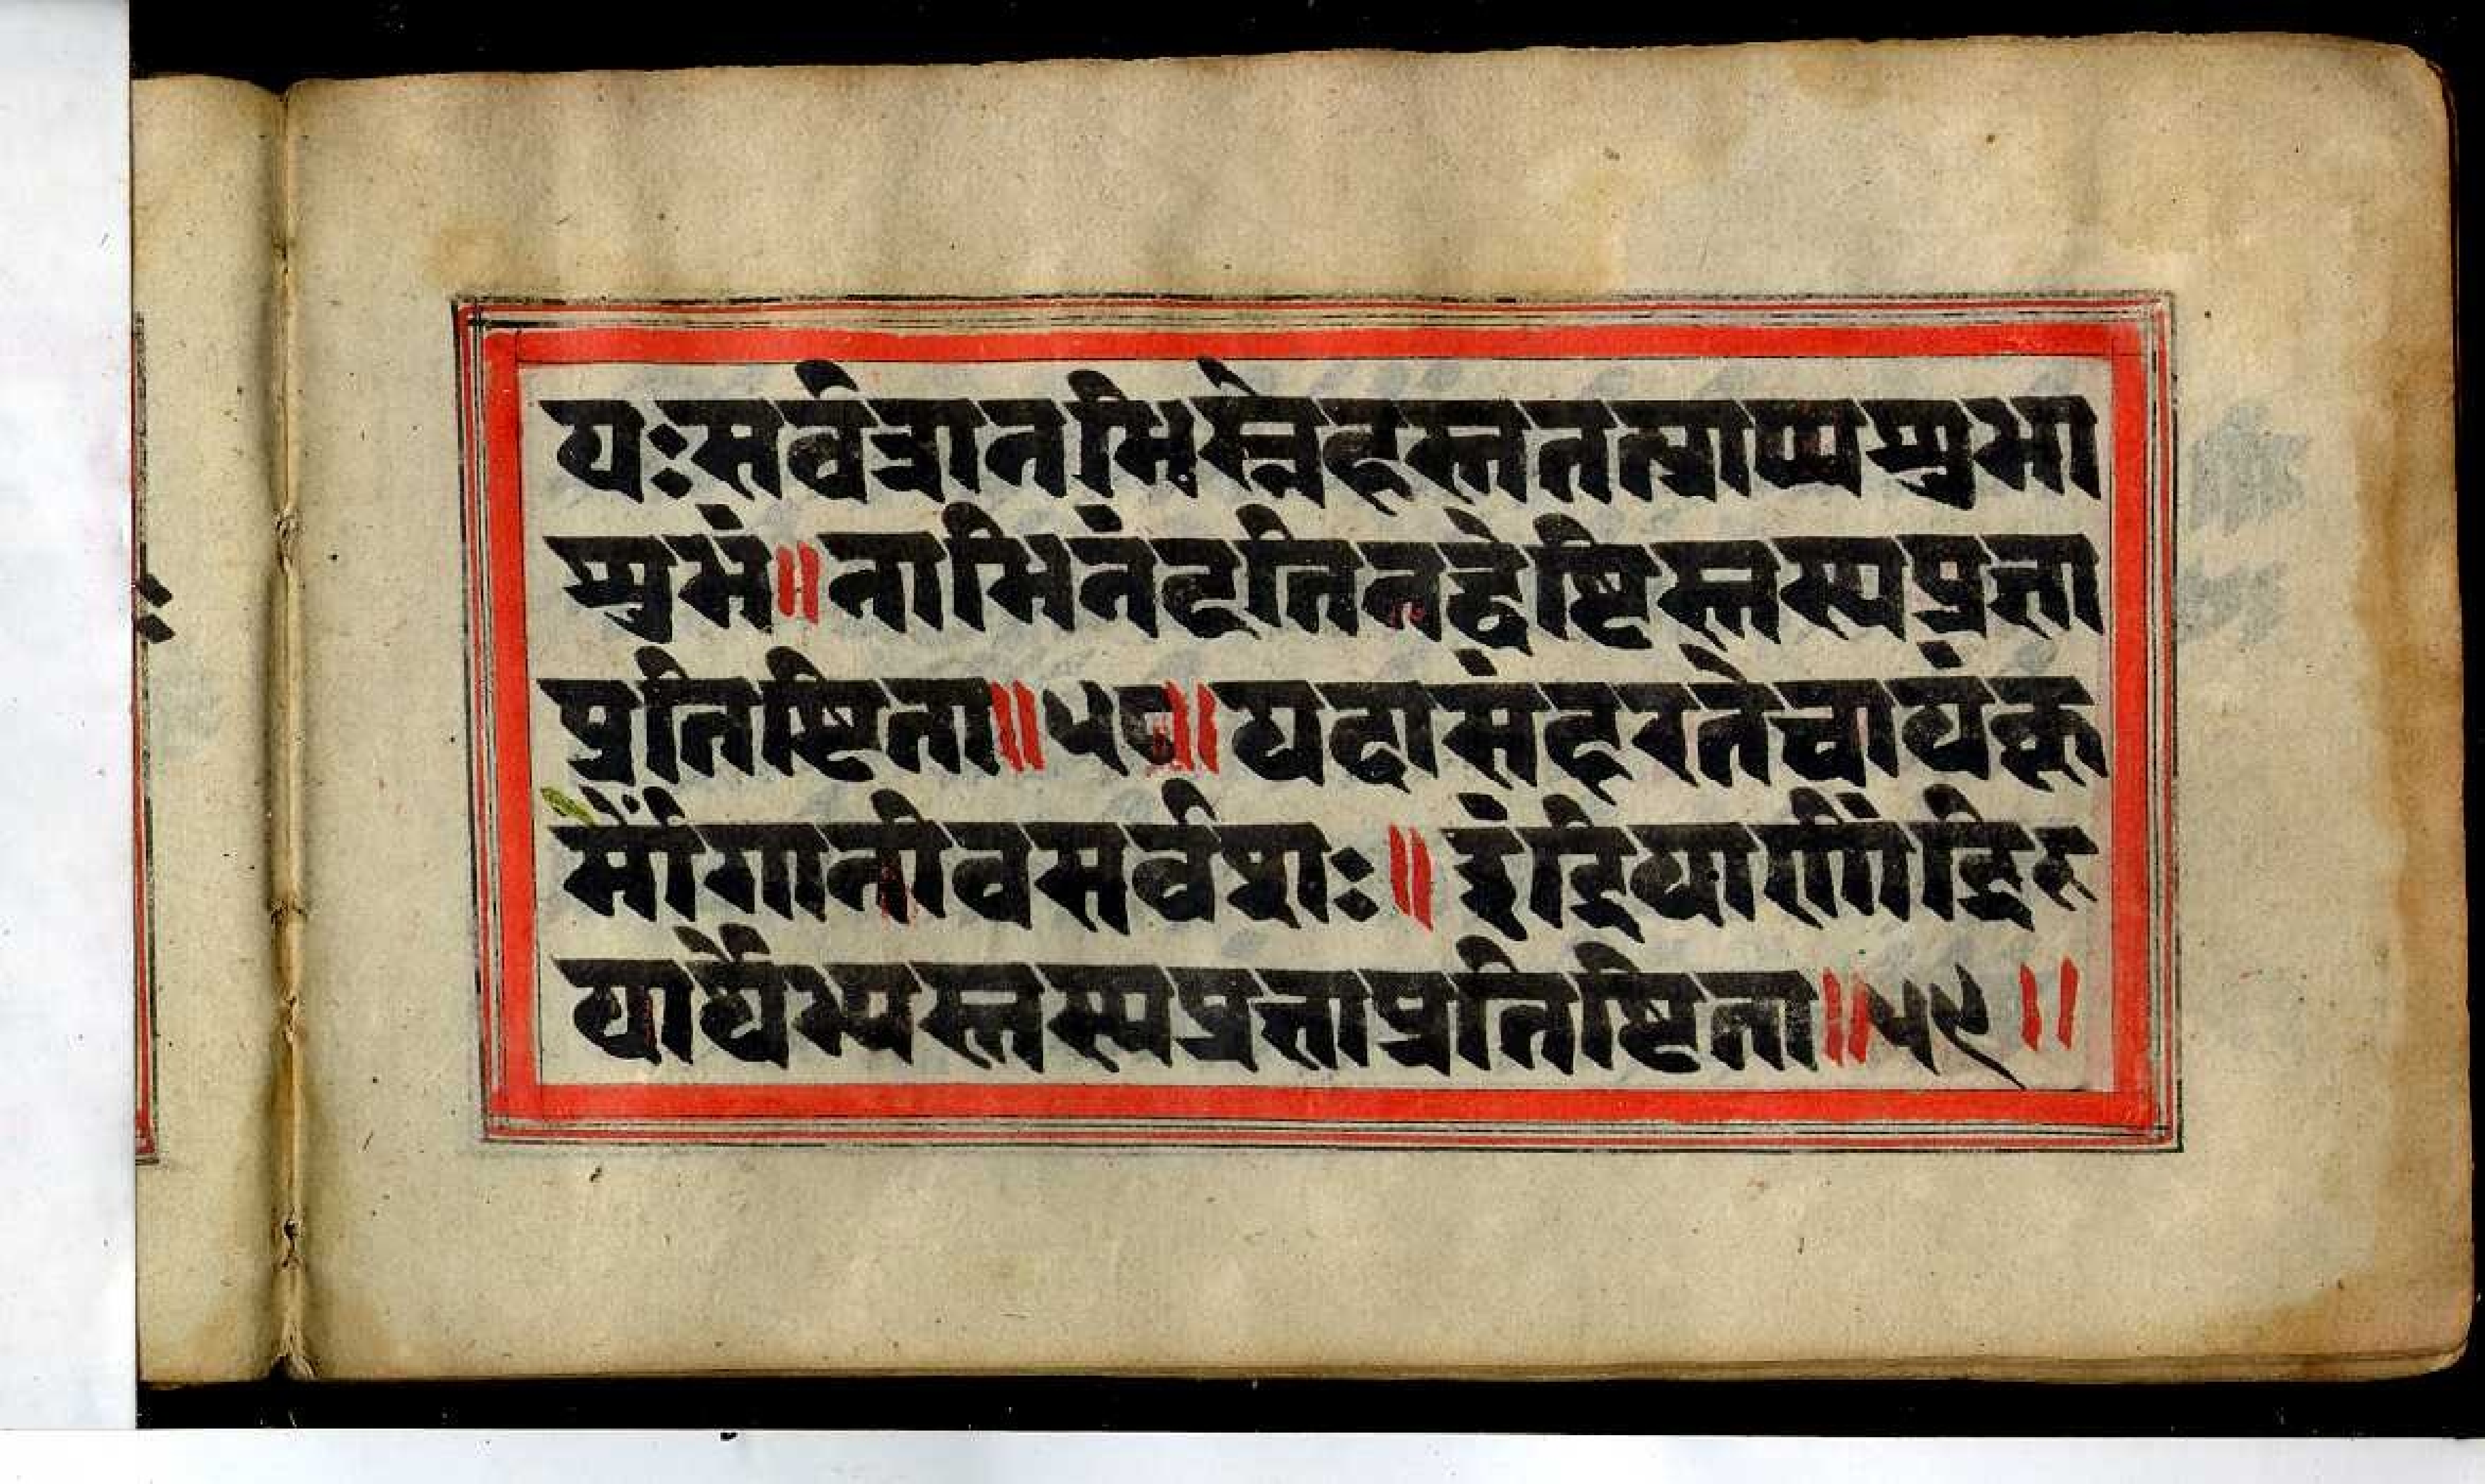 यःसर्वत्रानभिस्नेहस्तत्तत्प्राप्यशुभा
शुभं॥नाभिनंदतिनद्वेष्टिस्तस्यप्रज्ञा
प्रतिष्टिता॥५८॥यदासंहरतेचायंकू
र्मोंगानीवसर्वशः॥इंद्रियाणींद्रिर
यार्थेभ्यस्तस्यप्रज्ञाप्रतिष्टिता॥५९॥